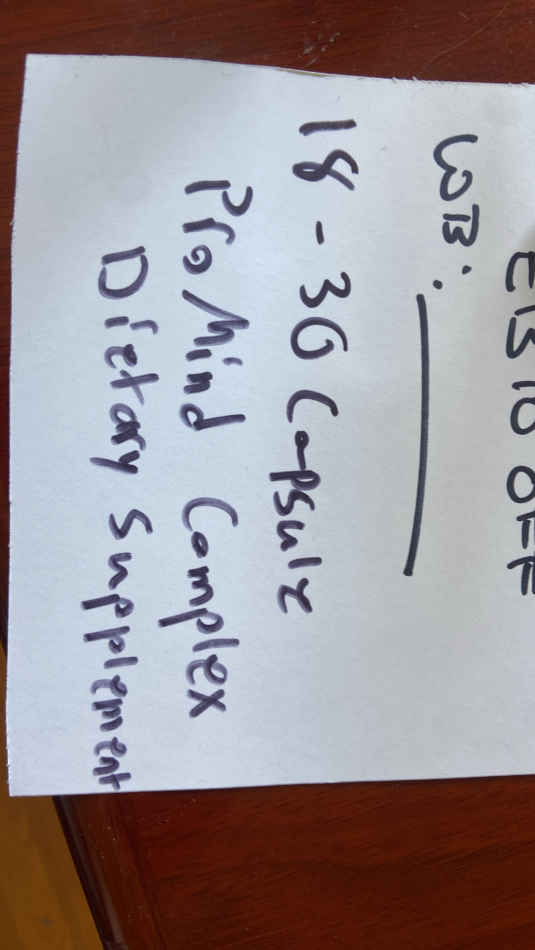 EB 10 OFF
WB:
18 - 30 Capsule
ProMind Complex
Dietary Supplement